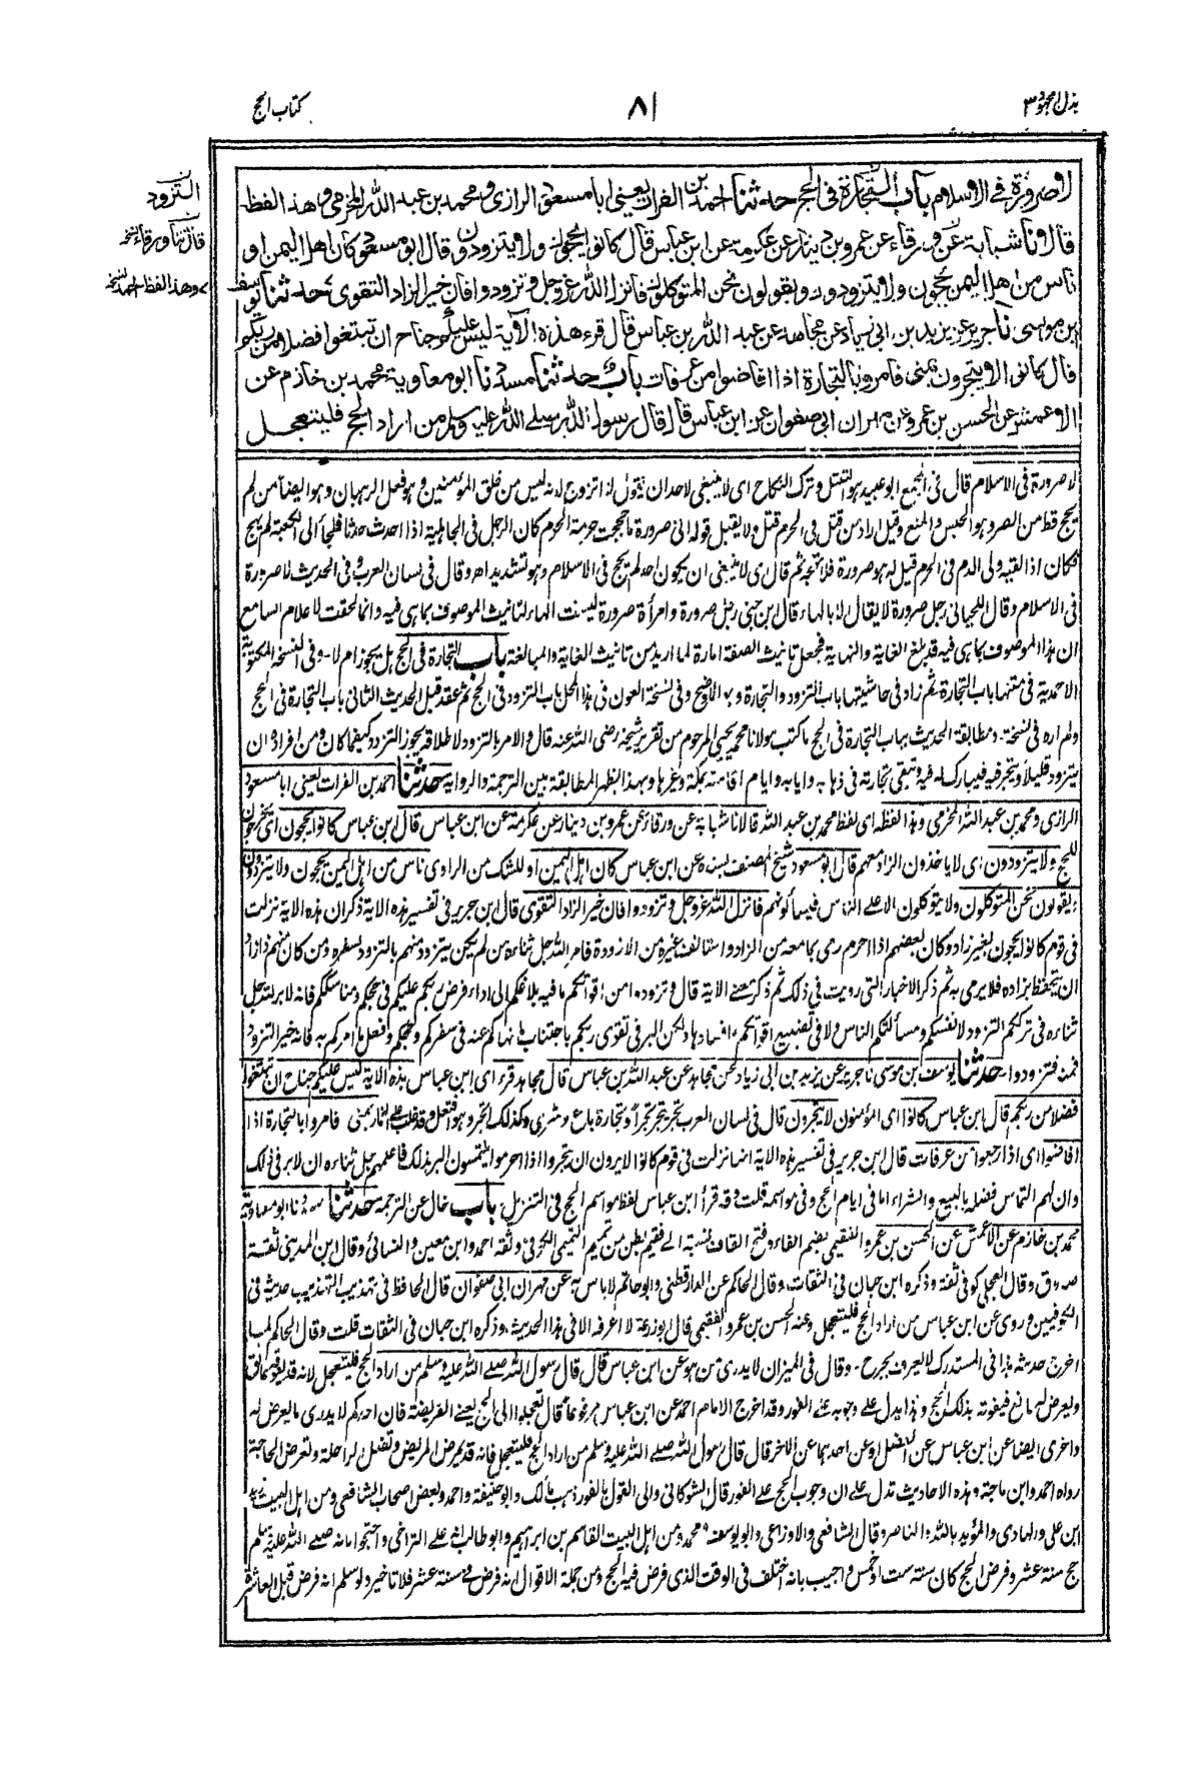 بذل المجهود ٣
٨١
كتاب الحج
لا صرورة في الاسلام باب التجارة في الحج حدثنا احمد بن الفرات يعنى ابا مسعود الرازى ومحمد بن عبد الله المخرمى وهذا لفظه
قالا نا شبابة عن ورقاء عن عمرو بن دينار عن عكرمة عن ابن عباس قال كانوا يحجون ولا يتزودون قال ابو مسعود كان اهل اليمن او
ناس من اهل اليمن يحجون ولا يتزودون ويقولون نحن المتوكلون فانزل الله عز وجل وتزودوا فان خير الزاد التقوى حدثنا يوسف
بن موسى نا جرير عن يزيد بن ابى زياد عن مجاهد عن عبد الله بن عباس قال قرء هذه الآية ليس عليكم جناح ان تبتغوا فضلا من ربكم
قال كانوا لا يتجرون بمنى فامروا بالتجارة اذا افاضوا من عرفات باب حدثنا مسدد نا ابو معاوية محمد بن خازم عن
الاعمش عن الحسن بن عمرو عن مهران ابى صفوان عن ابن عباس قال قال رسول الله صلے الله عليه وسلم من اراد الحج فليتعجل
التزود
قال نا ورقاء نسخه
وهذا لفظ احمد نسخه
لا صرورة فى الاسلام قال فى المجمع ابو عبيد هو التبتل وترك النكاح اى لا ينبغى لاحد ان يقول لا اتزوج لانه ليس من خلق المؤمنين وهو فعل الرهبان وهو ايضا من لم
يحج قط من الصر وهو الحبس والمنع وقيل اراد من قتل فى الحرم قتل ولا يقبل قوله انى صرورة ما حججت حرمة الحرم كان الرجل فى الجاهلية اذا احدث حدثا فلجأ الى الكعبة لم يهج
فكان اذا لقيه ولى الدم فى الحرم قيل له هو صرورة فلا تهجه ثم قال اى لا ينبغى ان يكون احد لم يحج فى الاسلام وهو تشديد اه وقال فى لسان العرب وفى الحديث لا صرورة
فى الاسلام وقال اللحيانى رجل صرورة لا يقال الا بالهاء قال ابن جنى رجل صرورة وامرأة صرورة ليست الهاء لتانيث الموصوف بما هى فيه وانما لحقت لاعلام السامع
ان هذا الموصوف بما هى فيه قد بلغ الغاية والنهاية فجعل تانيث الصفة امارة لما اريد من تانيث الغاية والمبالغة باب التجارة فى الحج هل يجوز ام لا۔ وفى النسخة المكتوبة
الاحمدية فى متنها باب التجارة ثم زاد فى حاشيتها باب التزود والتجارة وهو الاوضح وفى نسخة العون فى هذا المحل باب التزود فى الحج ثم عقد قبل الحديث الثانى باب التجارة فى الحج
ولم اره فى نسخة۔ ومطابقة الحديث بباب التجارة فى الحج ما كتب مولانا محمد يحيى المرحوم من تقرير شيخه رضى الله عنه قال والامر بالتزود لاطلاقه يجوز التزود كيفما كان ومن افراده ان
يتزود قليلا ويتجر فيه فيبارك له فيه وتبقى تجارته فى ذهابه وايابه وايام اقامته بمكة وغيرها وبهذا تظهر المطابقة بين الترجمة والرواية حدثنا احمد بن الفرات يعنى ابا مسعود
الرازى ومحمد بن عبد الله المخرمى وهذا لفظه اى لفظ محمد بن عبد الله قالا نا شبابة عن ورقاء عن عمرو بن دينار عن عكرمة عن ابن عباس قال ابن عباس كانوا يحجون اى يخرجون
للحج ولا يتزودون اى لا ياخذون الزاد معهم قال ابو مسعود شيخ المصنف بسنده عن ابن عباس كان اهل اليمن او للشك من الراوى ناس من اهل اليمن يحجون ولا يتزودون
ويقولون نحن المتوكلون ولا يتوكلون الا على الناس فيسألونهم فانزل الله عز وجل وتزودوا فان خير الزاد التقوى قال ابن جرير فى تفسير هذه الاية ذكر ان هذه الاية نزلت
فى قوم كانوا يحجون بغير زاد وكان بعضهم اذا احرم رمى بما معه من الزاد واستانف غيره من الازودة فامر الله جل ثناءه من لم يكن يتزود منهم بالتزود لسفره ومن كان منهم ذا زاد
ان يتحفظ بزاده فلا يرمى به ثم ذكر الاخبار التى رويت فى ذلك ثم ذكر معنے الاية قال وتزودوا من اقواتكم ما فيه بلاغكم الى اداء فرض ربكم عليكم فى حجكم ومناسككم فانه لا بر لله جل
ثناءه فى ترككم التزود لانفسكم ومسألتكم الناس ولا فى تضييع اقواتكم وافسادها ولكن البر فى تقوى ربكم باجتناب ما نهاكم عنه فى سفركم وحجكم وفعل ما امركم به فانه خير التزود
فمنه فتزودوا۔ حدثنا يوسف بن موسى نا جرير عن يزيد بن ابى زياد عن مجاهد عن عبد الله بن عباس قال مجاهد قرء اى ابن عباس هذه الاية ليس عليكم جناح ان تبتغوا
فضلا من ربكم قال ابن عباس كانوا اى المؤمنون لا يتجرون قال فى لسان العرب تجر يتجر تجرا وتجارة باع وشرى وكذلك اتجر وهو افتعل وقد غلب على الخمار بمنى فامروا بالتجارة اذا
افاضوا اى اذا رجعوا من عرفات قال ابن جرير فى تفسير هذه الاية انما نزلت فى قوم كانوا لا يرون ان يتجروا اذا احرموا يلتمسون البر بذلك فاعلمهم جل ثناءه ان لا بر فى ذلك
وان لهم التماس فضله بالبيع والشراء اما فى ايام الحج وفى مواسمه قلت وقد قرأ ابن عباس لفظ مواسم الحج فى التنزيل۔ باب خال عن الترجمة حدثنا مسدد نا ابو معاوية
محمد بن خازم عن الاعمش عن الحسن بن عمرو الفقيمى بضم الفاء وفتح القاف نسبة الے فقيم بطن من تميم التميمى الكوفى وثقه احمد وابن معين والنسائى وقال ابن المدينى ثقة
صدوق وقال العجلى كوفى ثقة وذكره ابن حبان فى الثقات وقال الحاكم عن الدارقطنى وابو حاتم لا باس به عن مهران ابى صفوان قال الحافظ فى تهذيب التهذيب حديثه فى
الكوفيين وروى عن ابن عباس من اراد الحج فليتعجل وعنه الحسن بن عمرو الفقيمى قال ابو زرعة لا اعرفه الا فى هذا الحديث وذكره ابن حبان فى الثقات قلت وقال الحاكم لما
اخرج حديثه هذا فى المستدرك لا يعرف بجرح۔ وقال فى الميزان لا يدرى من هو عن ابن عباس قال قال رسول الله صلے الله عليه وسلم من اراد الحج فليتعجل لانه قد يعوقه عائق
ويعرض له مانع فيفوته بذلك الحج وهذا يدل علے وجوبه علے الفور وقد اخرج الامام احمد عن ابن عباس مرفوعا قال تعجلوا الى الحج يعنى الفريضة فان احدكم لا يدرى ما يعرض له
واخرى ايضا عن ابن عباس عن الفضل او عن احدهما عن الاخر قال قال رسول الله صلے الله عليه وسلم من اراد الحج فليتعجل فانه قد يمرض المريض وتضل الراحلة وتعرض الحاجة
رواه احمد وابن ماجة وهذه الاحاديث تدل علے ان وجوب الحج علے الفور قال الشوكانى والى القول بالفور ذهب مالك وابو حنيفة واحمد وبعض اصحاب الشافعى ومن اهل البيت زيد
ابن على والهادى والمؤيد بالله والناصر وقال الشافعى والاوزاعى وابو يوسف ومحمد ومن اهل البيت القاسم بن ابراهيم وابو طالب انه علے التراخى واحتجوا بانه صلے الله عليه وسلم
حج سنة عشر وفرض الحج كان سنة ست او خمس واجيب بانه اختلف فى الوقت الذى فرض فيه الحج ومن جملة الاقوال انه فرض فى سنة عشر فلا تاخير ولو سلم انه فرض قبل العاشر